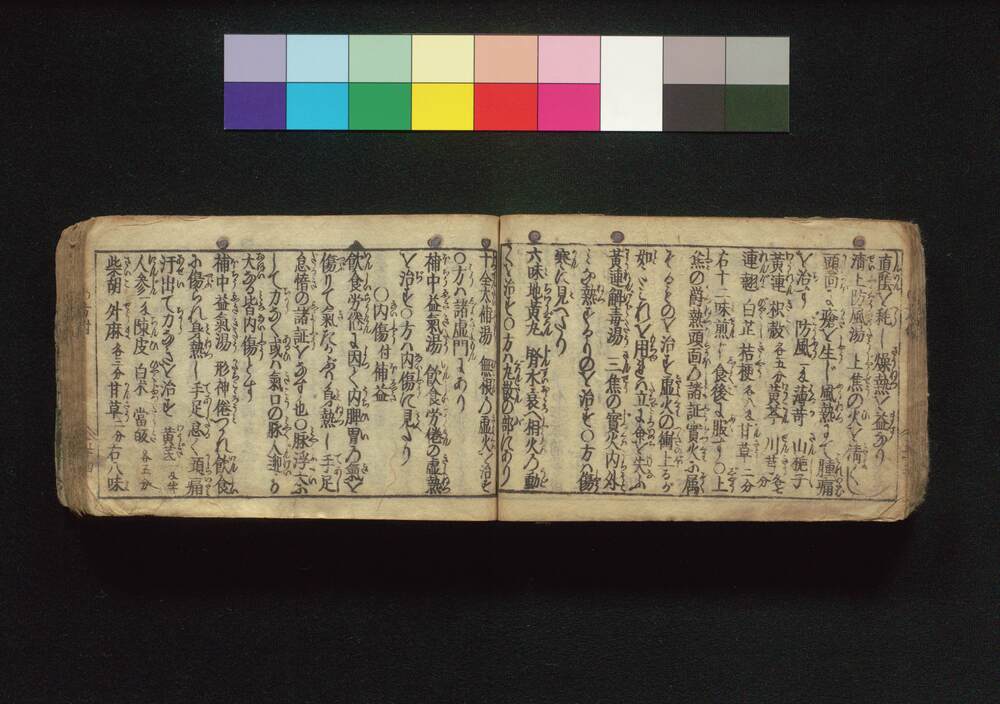 真陰を耗し燥熱を益なり
清上防風湯 上焦の火を清し
頭面に瘡を生じ風熱にて腫痛
を治す 防風一匁 薄荷 山梔子
黄連 枳殻各五分 黄芩 川芎各七
連翹 白芷 桔梗各八分 甘草二分
右十二味煎じ食後に服す〇上
焦の欝熱頭面の諸証實火に属
するものを治す虚火の衝上るが
如きにこれを用れば立に命を失ふ
黄連解毒湯 三焦の實火内外
みな熱するものを治す〇方は傷
寒に見へたり
六味地黄丸 腎水衰へ相火の動
くを治す〇方は丸散の部にあり
十全大補湯 無根の虚火を治す
〇方は諸虚門にあり
補中益氣湯 飲食労倦の虚熱
を治す〇方は内傷に見たり
〇内傷付補益
飲食労倦に因て内脾胃の氣を
傷りて氣を 熱し手足
怠惰の諸証をなす也〇脉浮大に
して力なく或は氣口の脉人迎より
大なる皆内傷とす
補中益氣湯 形神倦つかれ飲食
に傷られ身熱し手足怠く頭痛
汗出て力なきを治す 黄芪一匁半
人参一匁 陳皮 白朮 當皈各五分
柴胡 升麻各三分 甘草二分 右八味